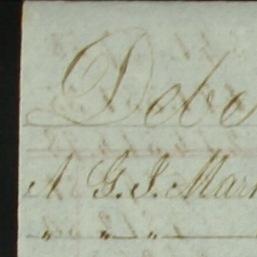 Debe
A G. J. Mar
" " "